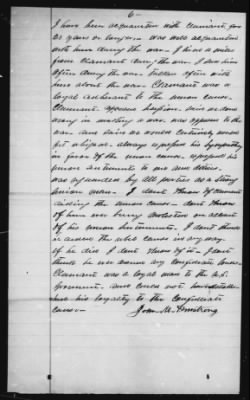 6—
I have been acquainted with claimant for
25 years or longer — was well acquainted
with him during the war — I lived a mile
from claimant during the war. I saw him
often during the war. talked often with
him about the war. Claimant was a
loyal adherent to the union cause.
Claimant opposed Secession, said
wrong in making a war, was opposed to the
war, and said we would certainly
get whipped. always expressed his sympathy
in favor of the union cause, expressed his
union sentiments to me and others.
was regarded by all parties as a strong
union man — I dont know of claimant
aiding the union cause — dont know
of him ever being molested on account
of his union sentiments. I dont think
he aided the rebel cause in any way
if he did I dont know of it — I dont
think he ever owned any confederate bonds
Claimant was a loyal man to the U.S.
government. and could not have
his loyalty to the Confederate
cause —
John M. Armstrong